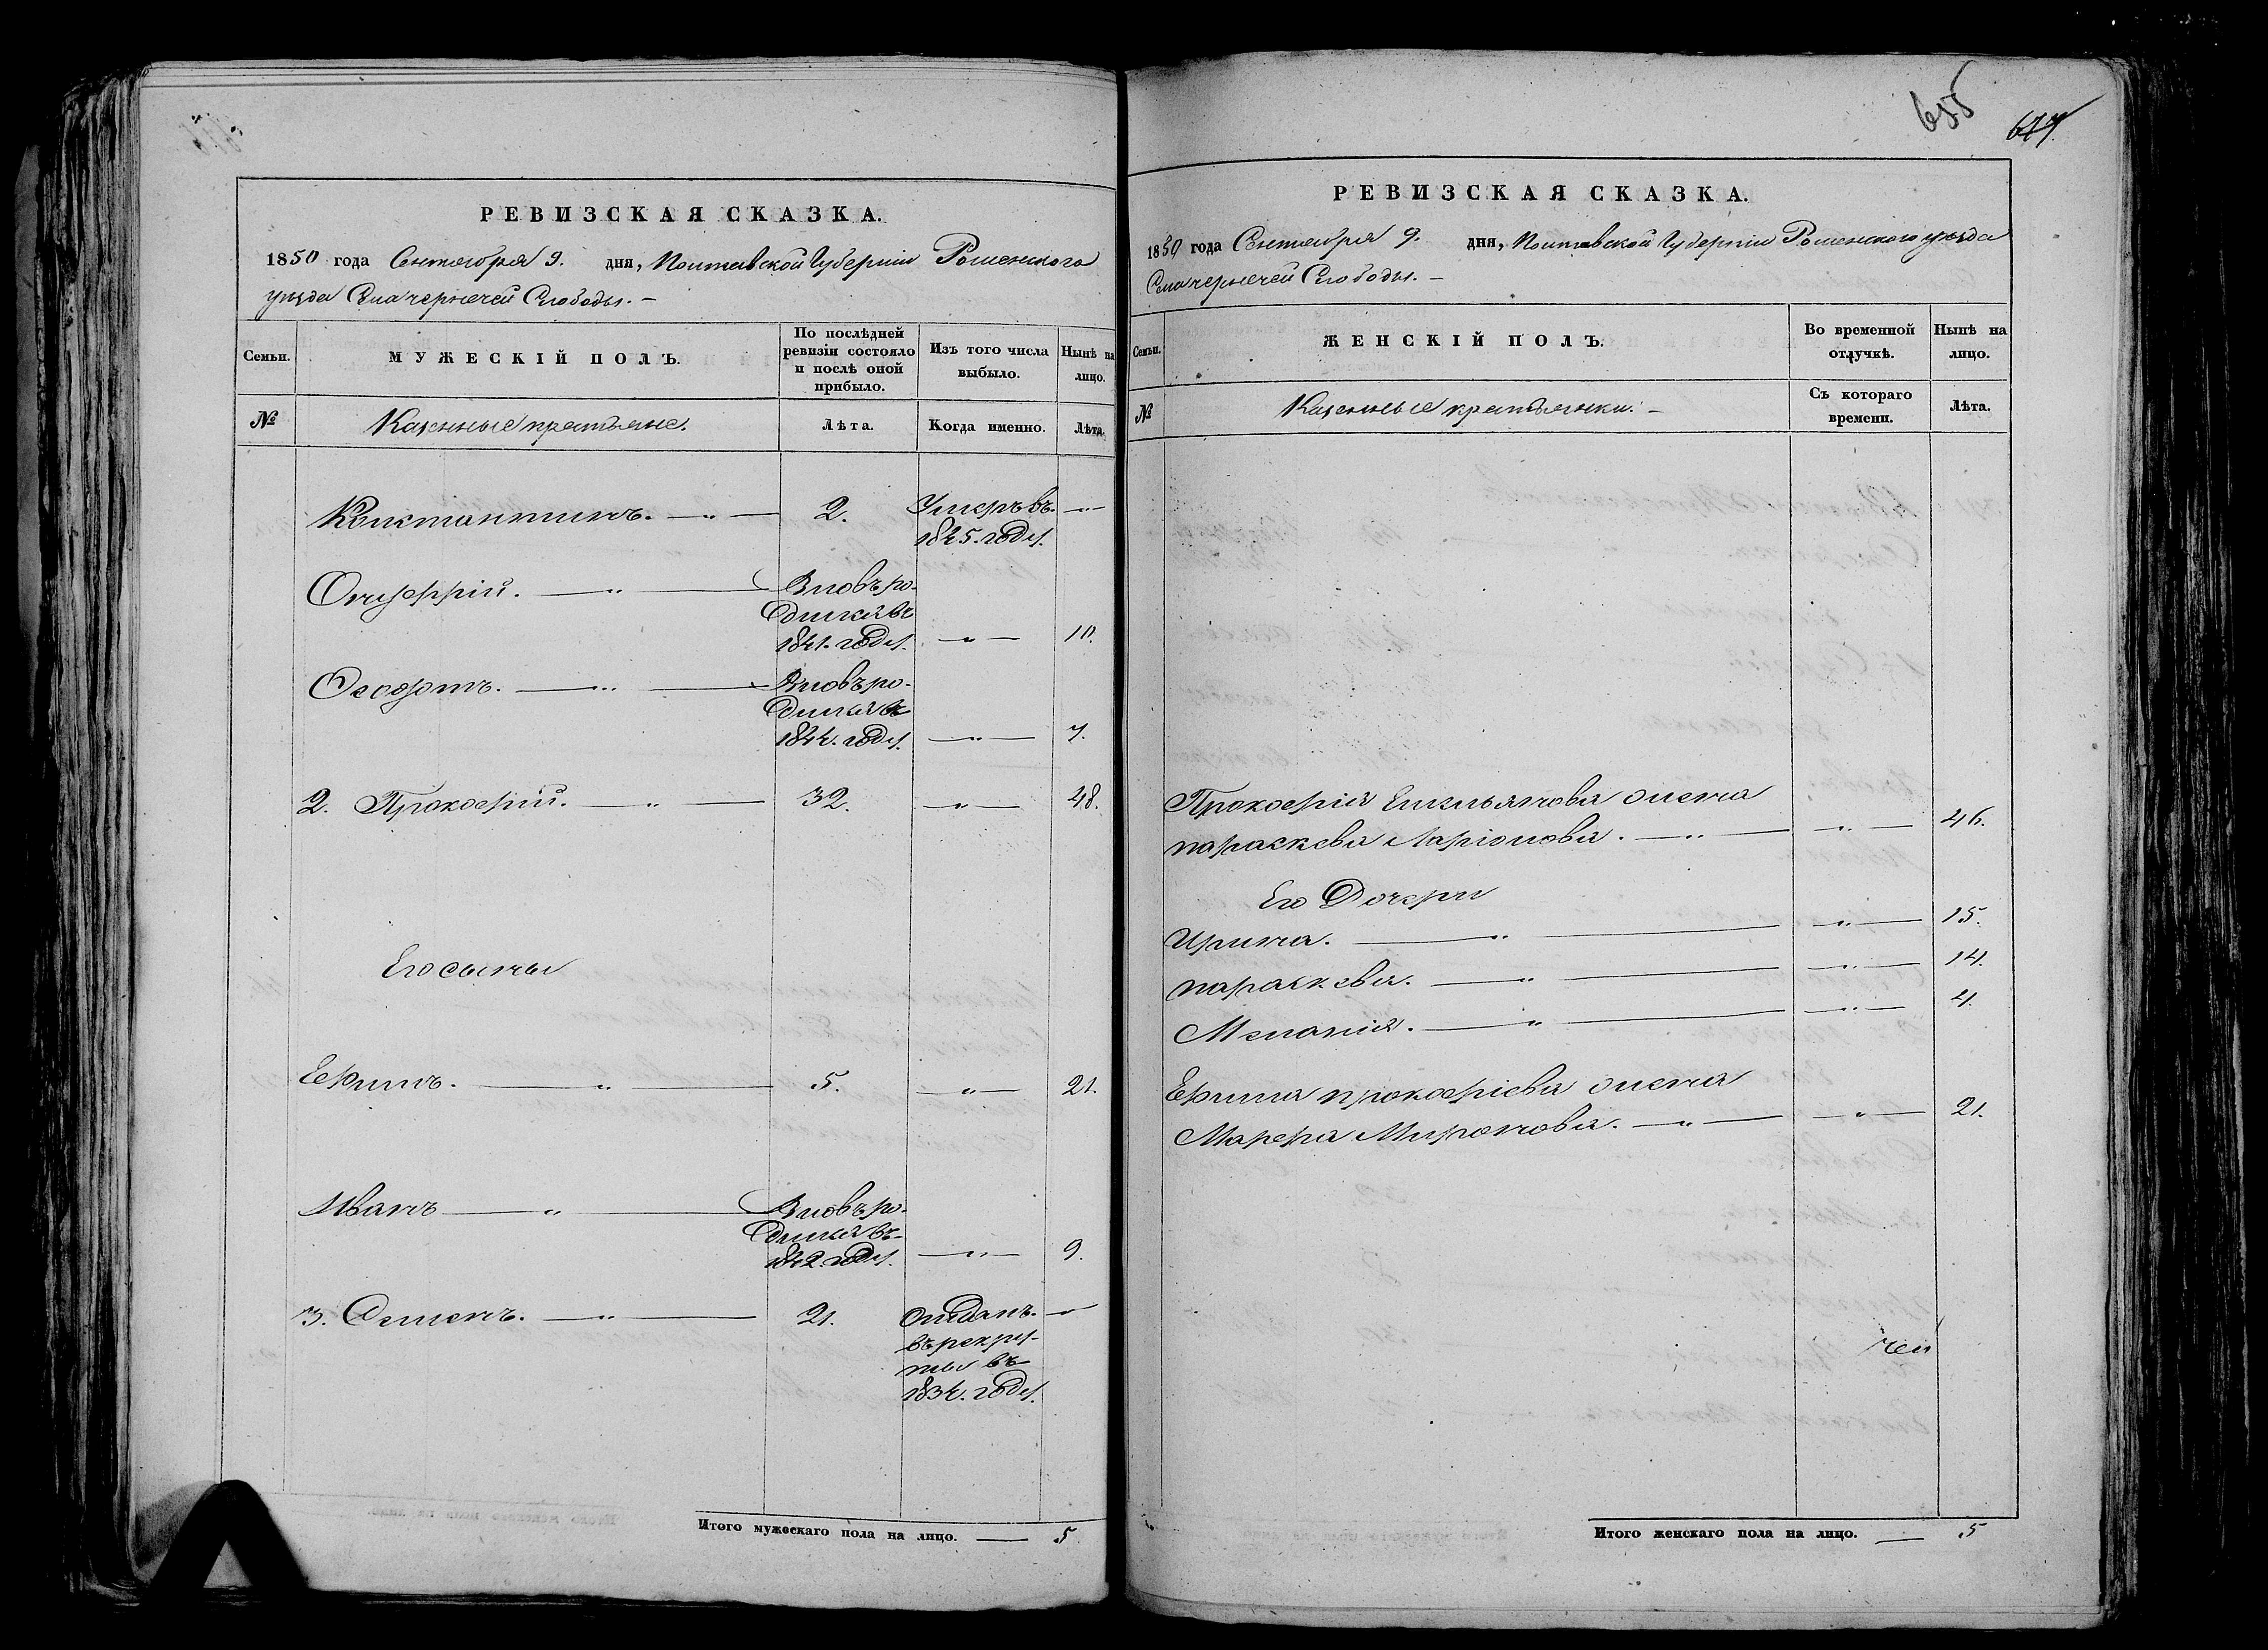 РЕВИЗСКАЯ СКАЗКА.
1850 года Сентября 9. дня, Полтавской Губерніи Роменского
уезда Села чернечей Слободы. —
Семьи.
МУЖЕСКІЙ ПОЛЪ.
По послѣдней ревизіи состояло и послѣ оной прибыло.
Изъ того числа выбыло.
Нынѣ на лицо.
№
Казенные крестьяне.
Лѣта.
Когда именно.
Лѣта.
Константинъ. — „ — 2. Умеръ въ — „ —
1845. году.
Онуфрій. — „ — Вновь ро-
дился въ
1841. году. — „ — 10.
Феодотъ. — „ — Вновь ро-
дился въ
1844. году. — „ — 7.
2. Прокофій. — „ — 32. — „ — 48.
Его сыны
Ефимъ. — „ — 5. — „ — 21.
Иванъ — „ — Вновь ро-
дился въ
1842. году. — „ — 9.
3. Семенъ. — „ — 21. отданъ. —
въ рекру-
ты въ
1834. году.
Итого мужескаго пола на лицо. — 5
655
677.
РЕВИЗСКАЯ СКАЗКА.
1850 года Сентября 9. дня, Полтавской Губерніи Роменского уезда
Села чернечей Слободы. —
Семьи.
ЖЕНСКІЙ ПОЛЪ.
Во временной отлучкѣ.
Нынѣ на лицо.
№
Казенные крестьянки. —
Съ котораго времени.
Лѣта.
Прокофія Емельянова жена
параскева Ларіонова. — „ — „ — 46.
Его Дочери
Ирина. — „ — „ — 15.
параскева. — „ — „ — 14.
Меланія. — „ — „ — 4.
Ефима прокофіева жена
Марфа Миронова. — „ — „ — 21.
чей
Итого женскаго пола на лицо. — 5